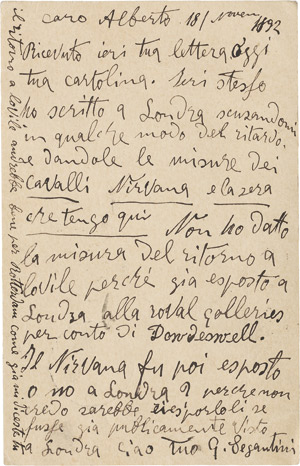 caro Alberto 18/ Novem 1892
Ricevuto ieri tua lettera oggi
tua cartolina. Ieri stesso
ho scritto a Londra scusandomi
in qualche modo del ritardo.
e dandole le misure dei
cavalli Nirvana e la zera
che tengo qui Non ho datto
la misura del ritorno a
lovile perché gia esposto a
Londra alla royal galleries
per conto di Dowdeswell.
Il Nirvana fu poi esposto
o no a Londra? perche non
credo sarebbe esporloli se
fusse gia publicamente visto
a Londra ciao tuo G. Segantini
il ritorno a lovile andrebbe bene per Rotterdam come gia mi